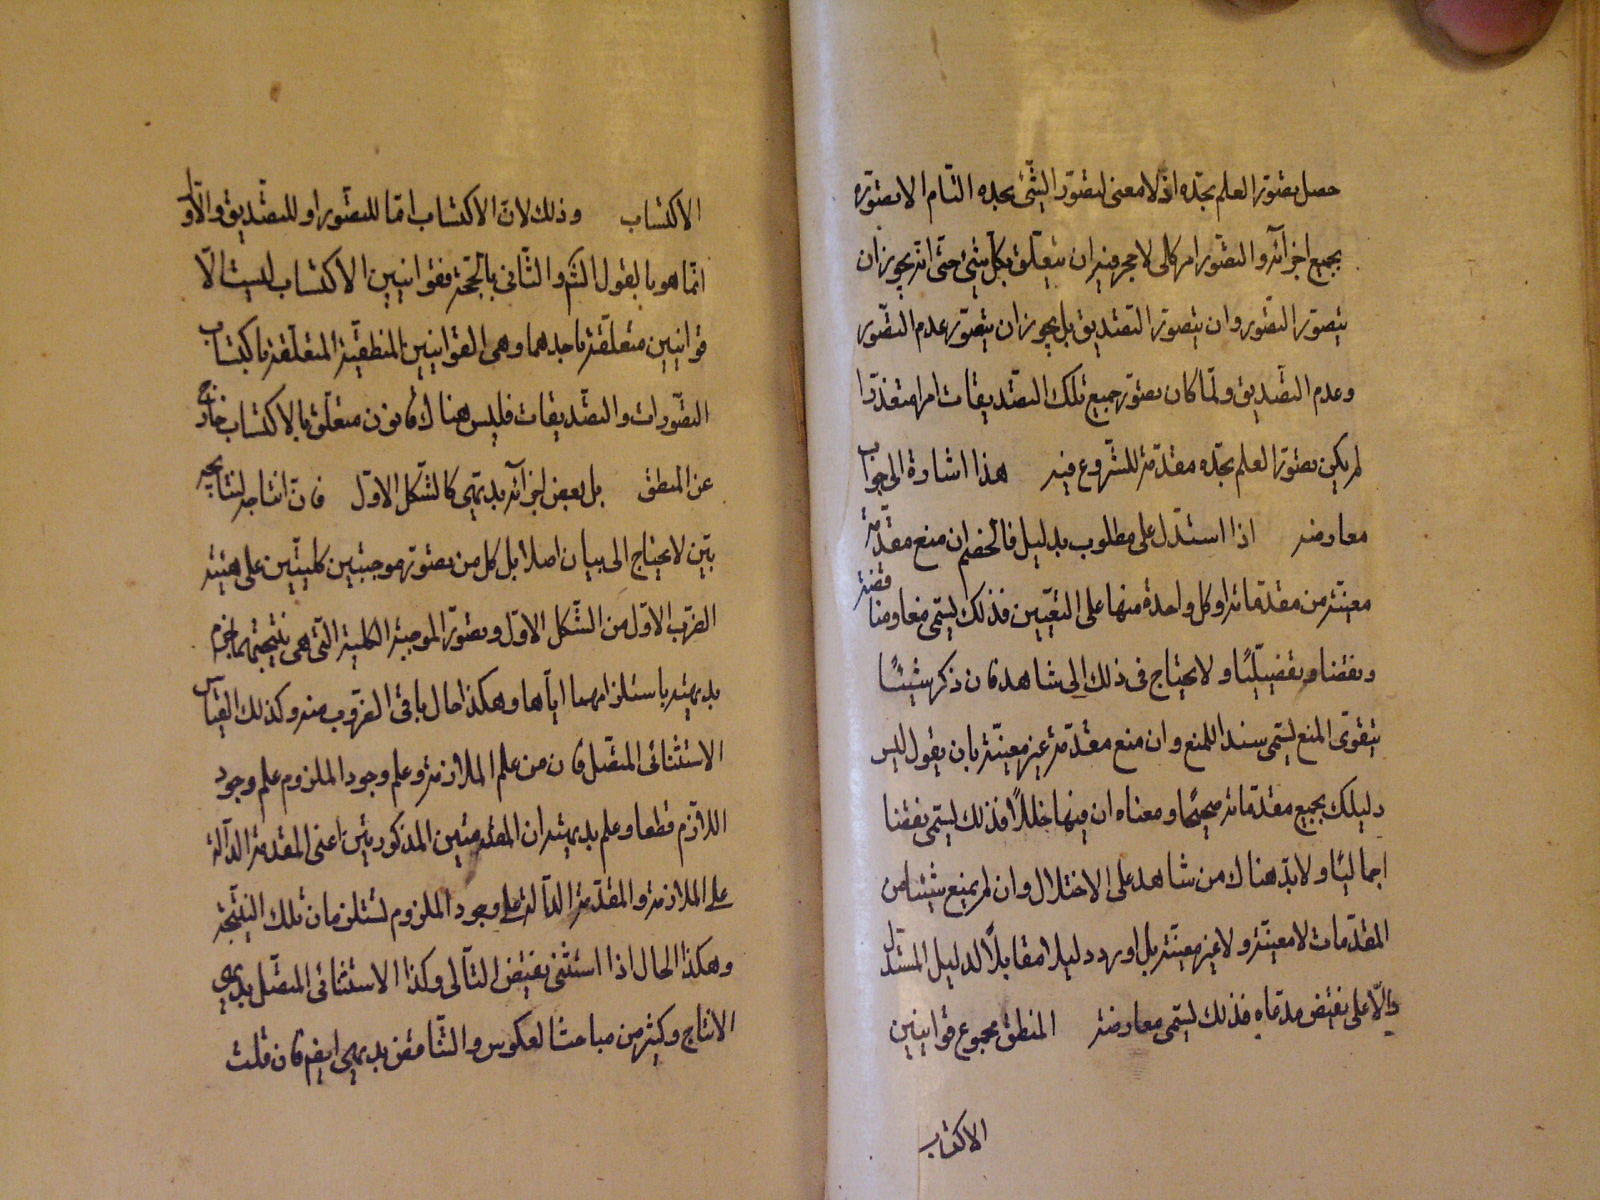 حصل بتصوّر العلم بحدّه اذ لا معنى لتصوّر الشّئ بحده التام الا بتصوّره
بجميع اجزائه والتصوّر امر كالى لا حجر فيه ان يتعلّق بكل شئ حتى انه يجوز ان
يتصوّر التصوّر وان يتصوّر التصديق بل يجوز ان يتصوّر عدم التصوّر
وعدم التصديق ولمّا كان تصوّر جميع تلك التصديقات امرا متعذّرا
لم يكن تصوّر العلم بحدّه مقدّمة للشروع فيه هذا اشارة الى جواب
معارضه اذا استدل على مطلوب بدليل فالخصم ان منع مقدّمة
معيّنة من مقدّماته او كل واحدة منها على التعيين فذلك يسمّى منعا ومناقضة
ونقضا وتفصيليّا ولا يحتاج فى ذلك الى شاهد فان ذكر شيئا
يتقوّى المنع يسمّى سندا للمنع وان منع مقدّمة غير معيّنة بان يقول ليس
دليلك بجميع مقدّماته صحيحًا ومعناه ان فيها خللاً فذلك يسمّى نقضا
اجماليّا ولا بدّ هناك من شاهد على الاختلال وان لم يمنع شيئا من
المقدّمات لا معيّنة ولا غير معيّنة بل اورد دليلا مقابلاً لدليل المستدل
دالّا على نقيض مدّعاه فذلك يسمّى معارضة المنطق مجموع قوانين
الاكتساب
الاكتساب وذلك لان الاكتساب امّا للتصوّر او للتصديق والاوّل
انّما هو بالقول الش والثّانى بالحجّة فقوانين الاكتساب ليست الّا
قوانين متعلّقة باحدهما وهى القوانين المنطقيّة المتعلّقة باكتساب
التصوّرات والتصديقات فليس هناك قانون متعلّق بالاكتساب خارج
عن المنطق بل بعض اجزائه بديهى كالشكل الاوّل فان انتاجه لنتايجه
بيّن لا يحتاج الى بيان اصلا بل كل من تصوّر موجبتين كليتين على هيئة
الضرب الاوّل من الشّكل الاوّل وتصوّر الموجبة الكلية التى هى نتيجتهما جزم
بديهيّة باستلزامهما ايّاها وهكذا حال باقى الضروب منه وكذلك القياس
الاستثنائى المتصل فان من علم الملازمة وعلم وجود الملزوم علم وجود
اللازم قطعا وعلم بديهة ان المقدمتين المذكورتين اعنى المقدمة الدالّة
على الملازمة والمقدّمة الدالّة على وجود الملزوم تستلزمان تلك النتيجة
وهكذا الحال اذا استثنى نقيض التالى وكذا الاستثنائى المتصل بديهى
الانتاج وكثير من مباحث العكوس والتّناقض بديهى ايضا فان قلت